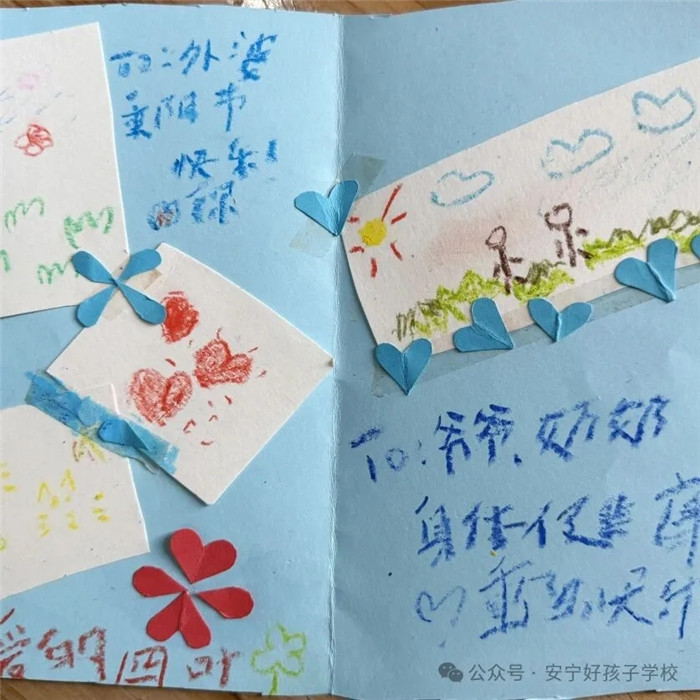 To:外婆
重阳节
快乐!
To:爷爷、奶奶
身体健
重阳快乐
爱的四叶
公众号·安宁好孩子学校